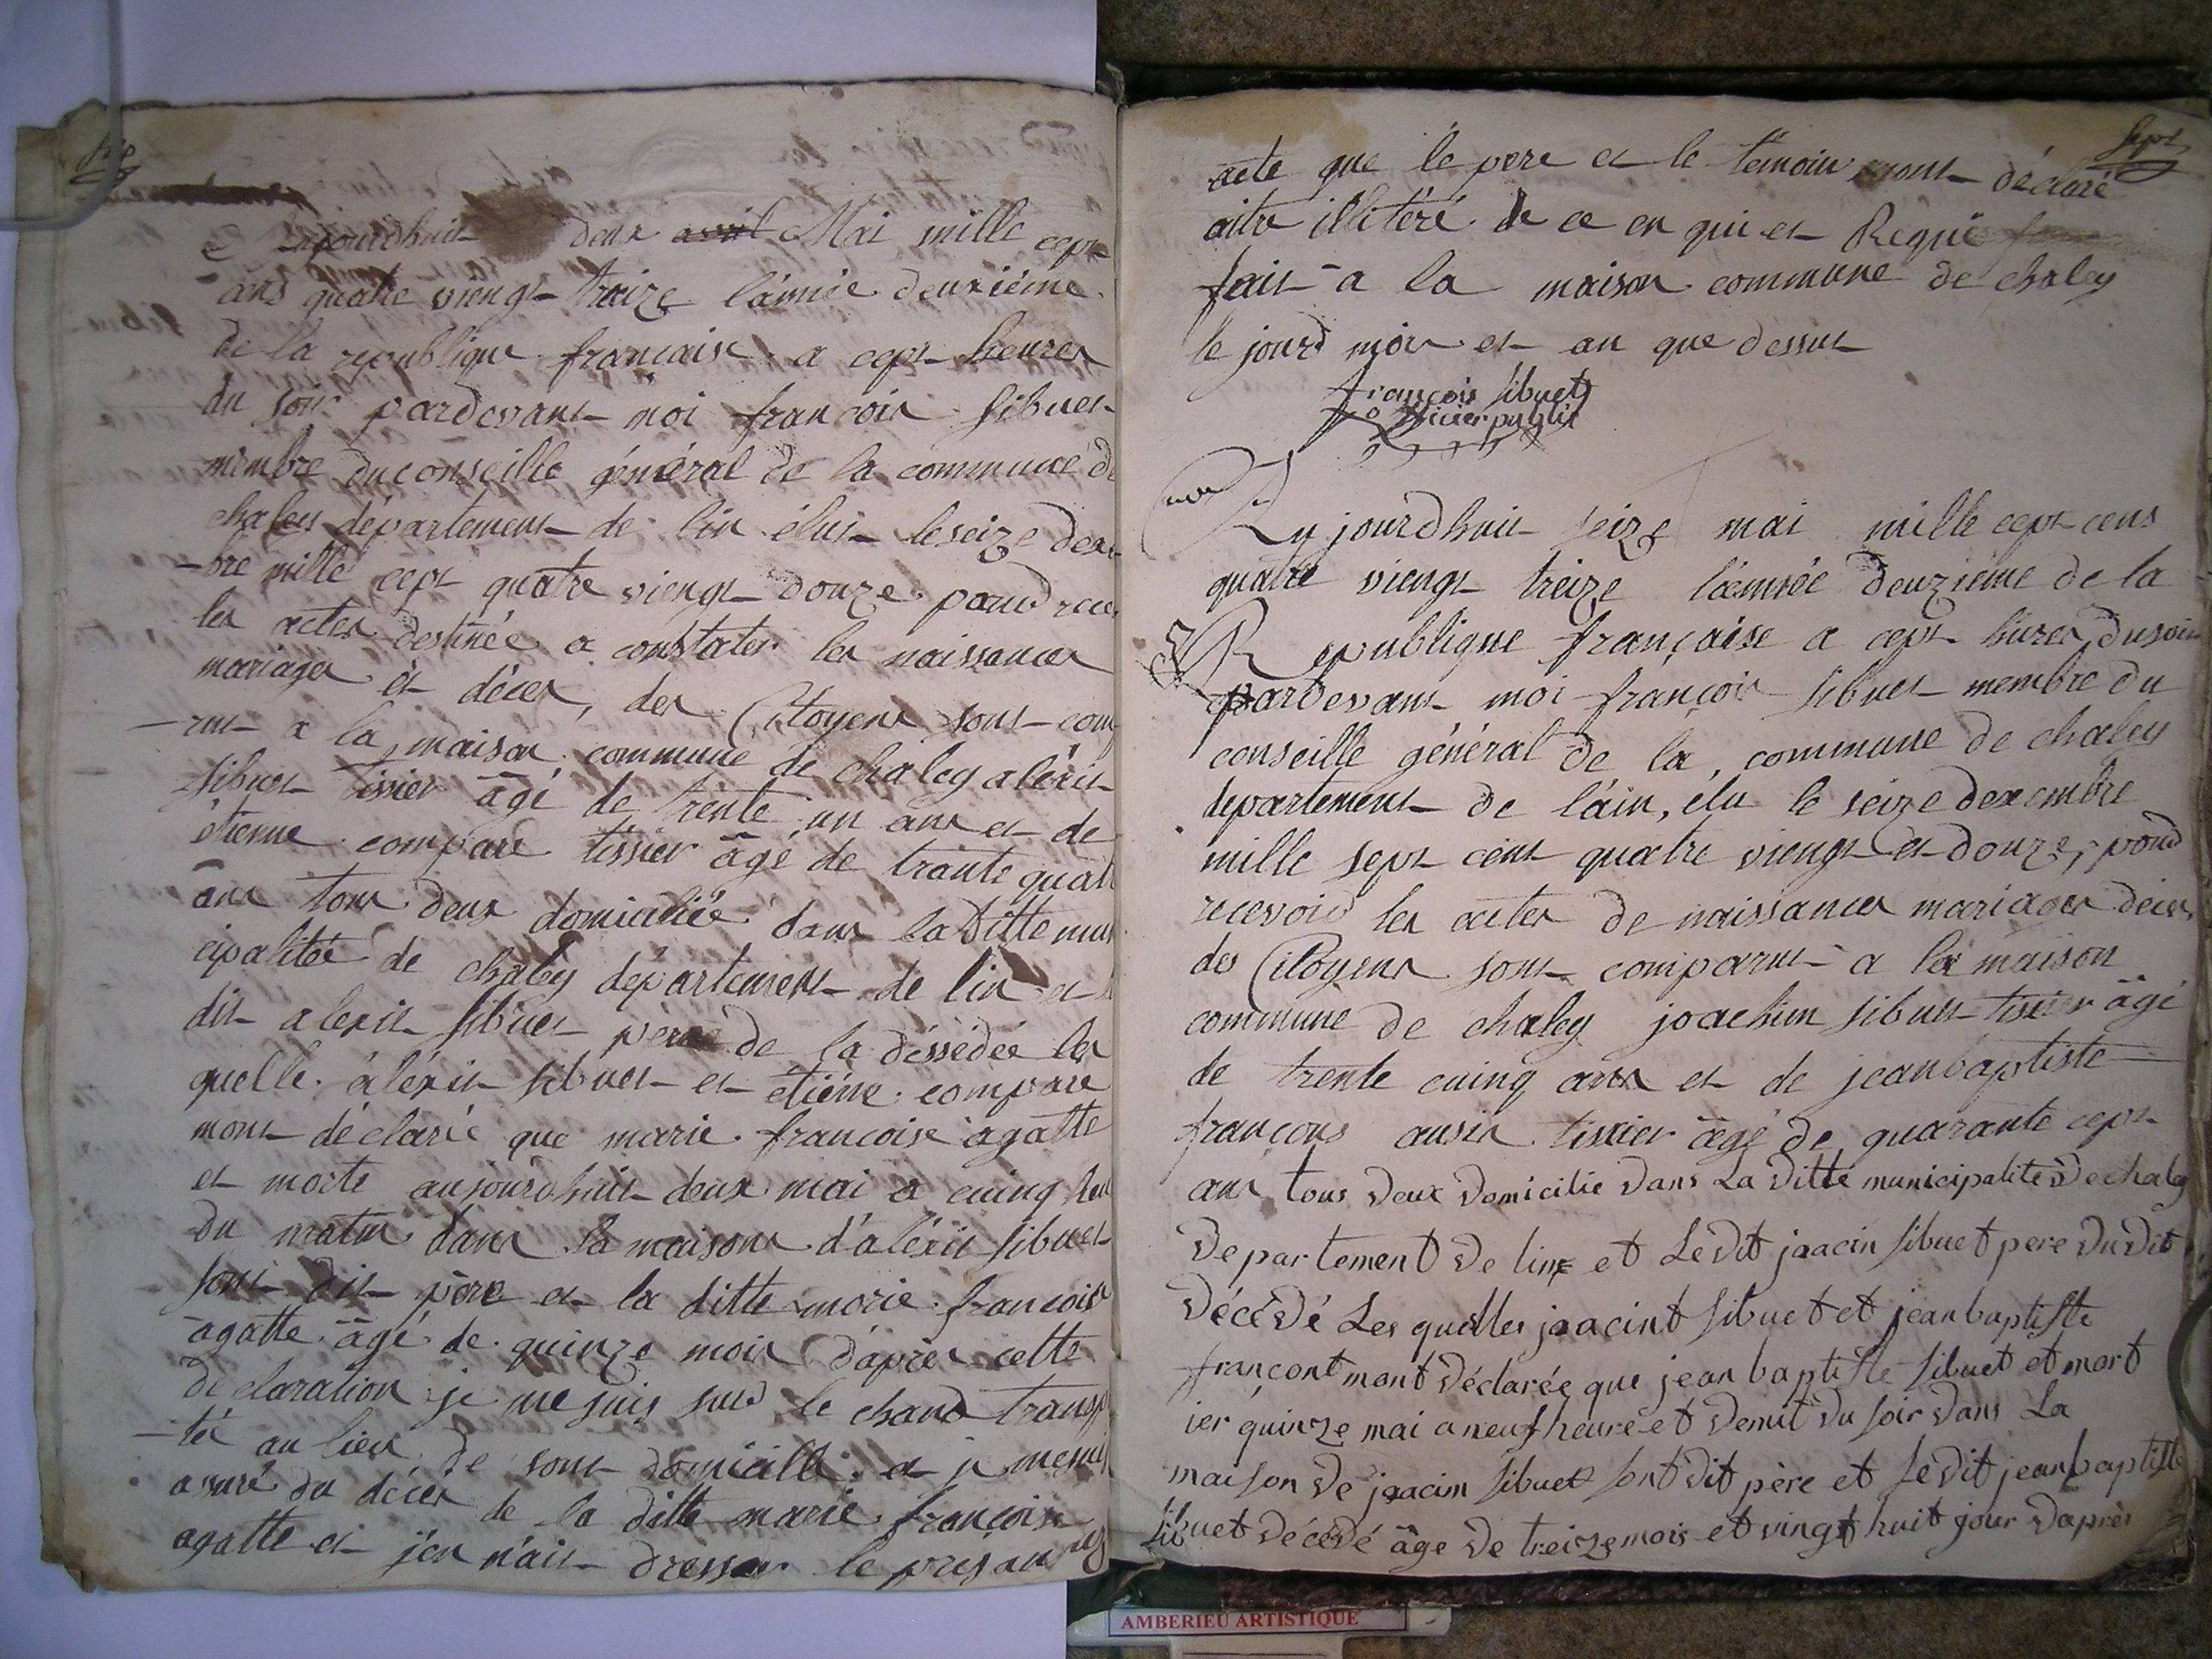 aujourdhuit deux avril Mai mille cept
ans quatre viengt traize l'année deuxième
de la republique française a cept heures
du soir pardevant moi francois sibuet
membre du conseille général de la commune de
chaley département de lin élut le seize dexem
-bre mille cept quatre viengt douze pourd rece
les actes destinée a constater les naissances
mariages et déces, des Citoyens sont comp
-rut a la maison commune de chaley aléxis
sibuet tissier âgé de trente un ans et de
étienne compare tissier âgé de trante quatr
ans tous deux domicilïée dans la ditte mun
cipalitée de chaley département de lin et le
dit alexis sibuet père de la déssédée les
quelle aléxis sibuet et étiéne compare
mont déclarée que marie francoise agatte
et morte aujourdhuit deux mai a cuinq heu
du matin dans la maison d'aléxis sibuet
sont dit père et la ditte marie francoise
agatte âgé de quinze mois d'après cette
déclaration je me suis surd le chand transp
-té au lieu de sont domicille et je me suis
asuré du déces de la ditte marie françoise
agatte et j'en n'ait dresser le presant
sept
acte que le pere et le témoin mont déclaré
aitre illitéré de ce en qui et Requi
fait a la maison commune de chaley
le jourd mois et an que dessus
françois sibuet
officier public
mor
Aujourdhuit seize mai mille cept cens
quatre viengt treize l'année deuzième de la
Republique française a cept hures du soir
pardevant moi françois sibuet membre du
conseille général de la commune de chaley
departement de l'ain, élu le seize dexembre
mille sept cent quatre viengt et douze, pourd
recevoird les actes de naissances mariages déces
des Citoyens sont comparut a la maison
commune de chaley joachim sibuet tissier âgé
de trente cuinq ans et de jeanbaptiste
françons ausin tissier âgé de quarante cept
ans tous deux domicilie dans La ditte municipalité de chaley
departement de lin et Ledit jaacin sibuet pere dudit
décédé Les quelles jaacint sibuet et jean baptiste
françont mont déclarée que jean baptiste sibuet et mort
ier quinze mai a neuf heure et demit du soir dans La
maison de jaacim sibuet sont dit père et Ledit jean baptiste
sibuet décédé âge de treize mois et vingt huit jour daprès
AMBERIEU ARTISTIQUE